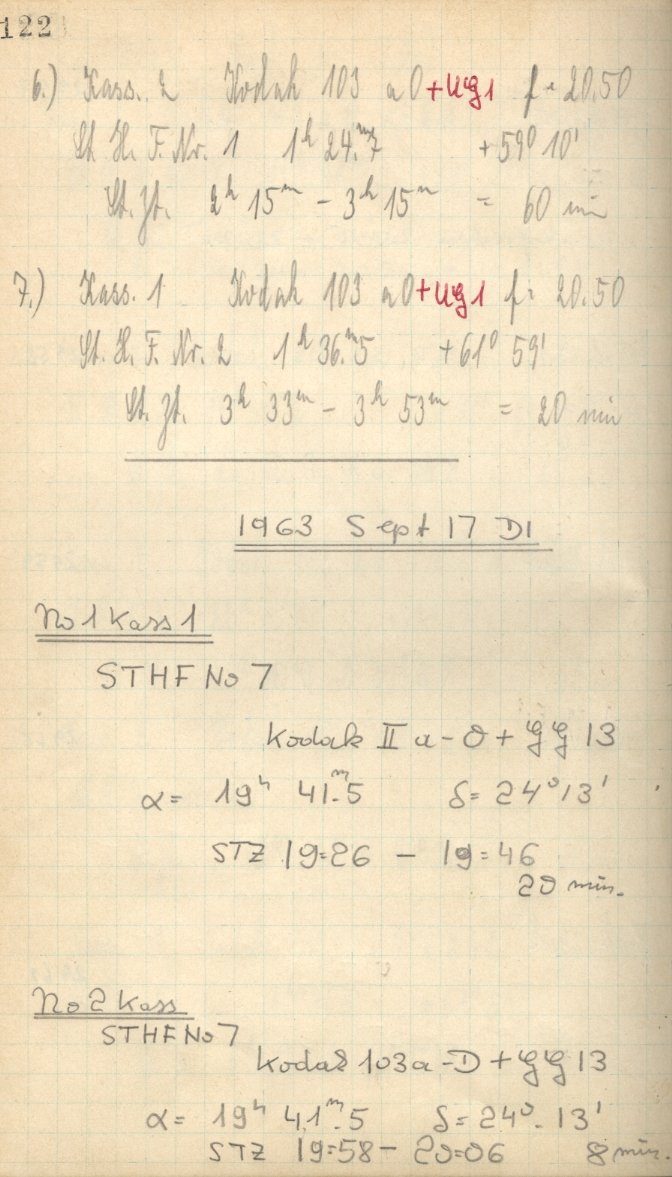 122
6.) Kass. 2 Kodak 103 aO+UG1 f = 20.50
St. H. F. Nr. 1 1h 24.m7 +59° 10'
St. Zt. 2h 15m - 3h 15m = 60 min
7.) Kass. 1 Kodak 103 aO+UG1 f = 20.50
St. H. F. Nr. 2 1h 36.m5 +61° 59'
St. Zt. 3h 33m - 3h 53m = 20 min
1963 Sept 17 DI
No 1 Kass 1
STHF No 7
Kodak II a-O + GG 13
α = 19h 41.m5 δ = 24° 13'
STZ 19=26 - 19=46
20 min.
No 2 Kass
STHF No 7
Kodak 103a-D + GG 13
α = 19h 41m.5 δ = 24°. 13'
STZ 19=58 - 20=06 8 min.